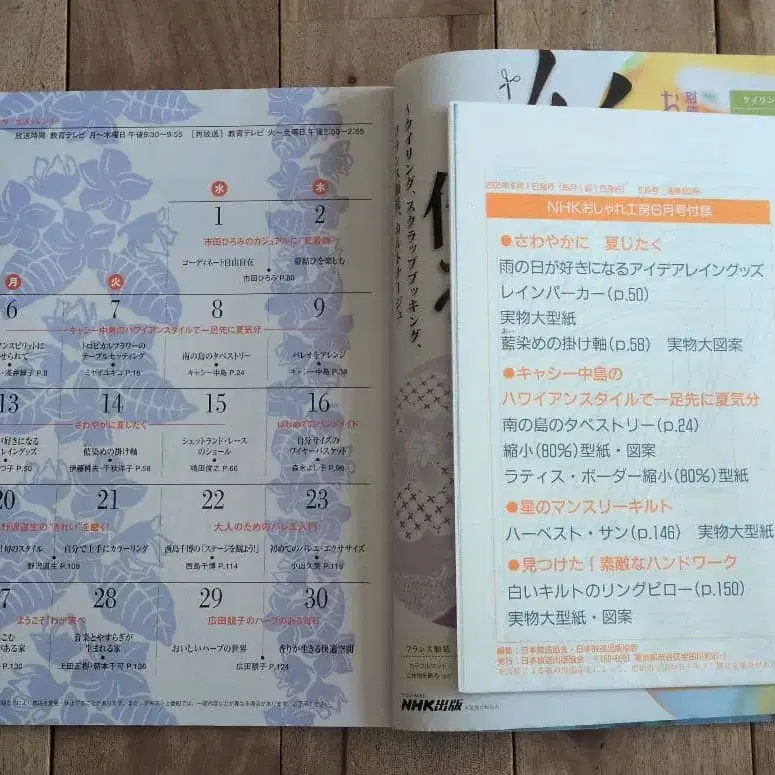 放送時間 教育テレビ 月～木曜日 午後9:30～9:55 ［再放送］ 教育テレビ 火～金曜日 午後2:30～2:55
水 木
1 2
市田ひろみのカジュアルに
コーディネート自由自在
帯結びを楽しむ
市田ひろみ P.80
月 火
6 7 8 9
キャシー中島のハワイアンスタイルで一足先に夏気分
トロピカルフラワーの
テーブルセッティング
ミヤイユキコ P.18
南の島のタペストリー
キャシー中島 P.24
パレオをアレンジ
13 14 15 16
さわやかに夏じたく
はじめてのハンドメイド
藍染めの掛け軸
伊藤純夫・千秋洋子 P.58
シェットランド・レース
のショール
嶋田俊之 P.66
自分サイズの
ワイヤーバスケット
森永よし子 P.96
20 21 22 23
野沢道生の“きれい”を磨く！
大人のためのバレエ入門
旬のスタイル
野沢道生 P.108
自分で上手にカラーリング
西島千博の「ステージを観よう！」
西島千博 P.114
初めてのバレエ・エクササイズ
28 29 30
ようこそ！わが家へ
広田靚子のハーブのある毎日
P.130
音楽とやすらぎが
生まれる家
上田正樹
P.136
おいしいハーブの世界
広田靚子 P.124
香りが生きる快適空間
～ケイリング、スクラップブッキング、
NHK出版
NHKおしゃれ工房6月号付録
●さわやかに 夏じたく
雨の日が好きになるアイデアレイングッズ
レインパーカー(p.50)
実物大型紙
藍染めの掛け軸(p.58) 実物大図案
●キャシー中島の
ハワイアンスタイルで一足先に夏気分
南の島のタペストリー(p.24)
縮小(80%)型紙・図案
ラティス・ボーダー縮小(80%)型紙
●星のマンスリーキルト
ハーベスト・サン(p.146) 実物大型紙
●見つけた！素敵なハンドワーク
白いキルトのリングピロー(p.150)
実物大型紙・図案
編集：日本放送協会・日本放送出版協会
発行：日本放送出版協会